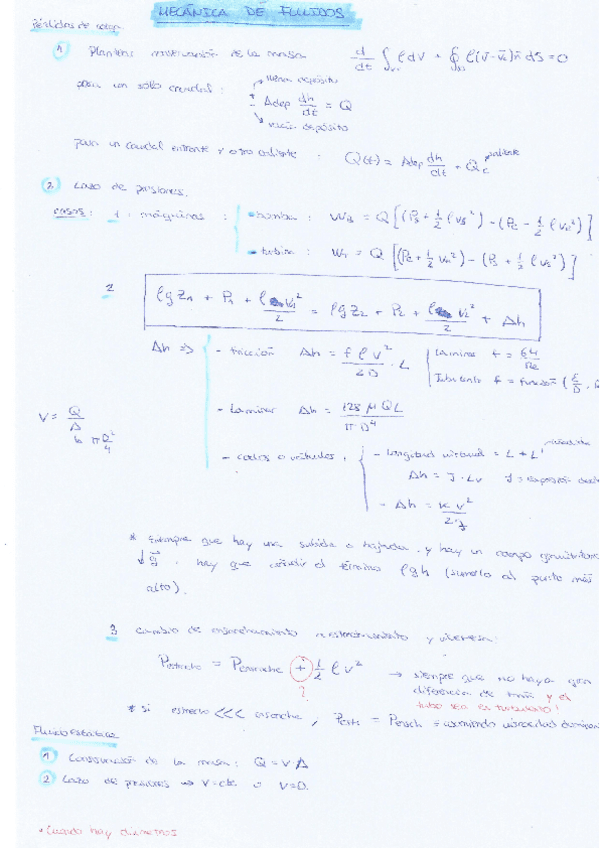 MECÁNICA DE FLUIDOS
Pérdidas de carga
1 Plantear conservación de la masa d/dt ∫ ρ dV + ∮ ρ(v̄ - v̄c) n̄ ds = 0
para un sólo caudal : llenar depósito
± Adep dh/dt = Q
vaciar depósito
para un caudal entrante y otro saliente : Q(t) = Adep dh/dt + Qc
2 Lazo de presiones.
casos : 1. máquinas : • bomba :
• turbina :
2 ρgz1 + P1 + ρ v1²/2 = ρgz2 + P2 + ρ v2²/2 + Δh
Δh ⇒ - fricción Δh = f ρ v²/2D · L
Laminar f = 64/Re
Turbulento f = función (ε/D,
V = Q/A
↳ πD²/4
- Laminar Δh = 128 μ Q L / π D⁴
- codos o válvulas : - longitud virtual = L + L'
Δh = J · Lv J =
- Δh = K v²/2g
* siempre que hay una subida o bajada, y hay un campo gravitatorio
↓ g , hay que añadir el término ρgh (sumarlo al punto más
alto).
3 Cambio de ensanchamiento a estrechamiento y viceversa:
Pestrecho = Pensanche + 1/2 ρ v² → siempre que no haya gran
? diferencia de y el
tubo sea es turbulento!
* si estrecho <<< ensanche, Pestr = Pensch =
Fluidoestática
1 Conservación de la masa: Q = V A
2 Lazo de presiones ⇒ V = cte o V = 0.
* Cuando hay diámetros